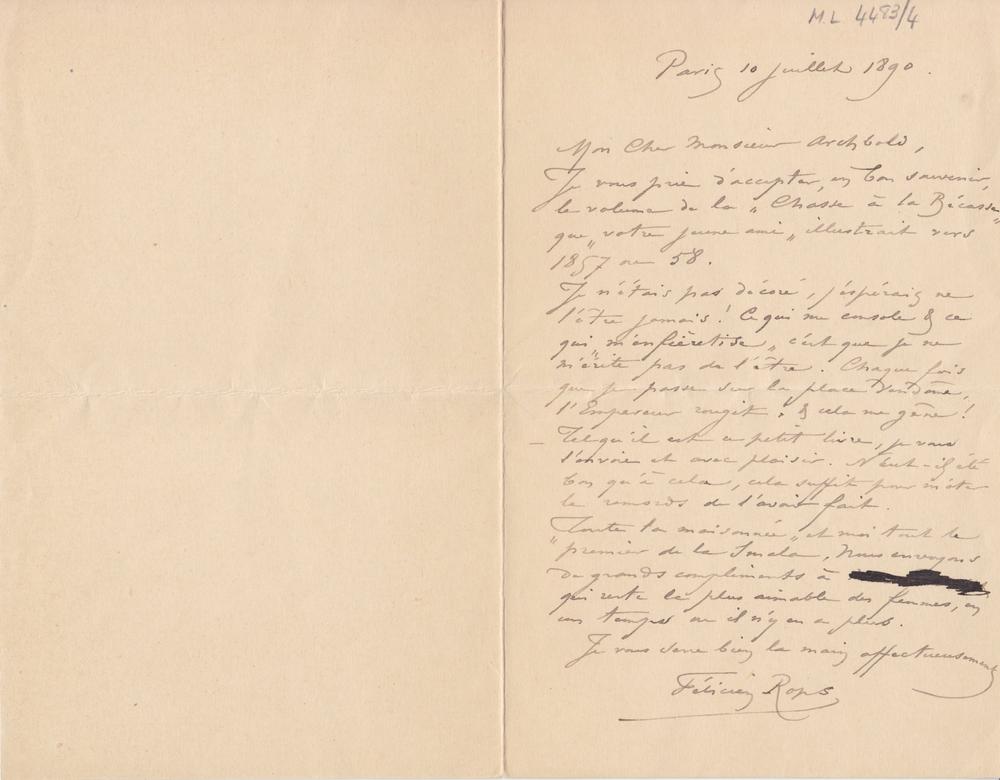 M.L 4483/4
Paris 10 juillet 1890.
Mon Cher Monsieur Archbold,
Je vous prie d'accepter, en bon souvenir,
le volume de la „Chasse à la Bécasse"
que „votre jeune ami„ illustrait vers
1857 ou 58.
Je n'étais pas décoré, j'espérais ne
l'être jamais! Ce qui me console & ce
qui „m'enfièretise„ c'est que je ne
mérite pas de l'être. Chaque fois
que je passe sur la place Vendôme,
l'Empereur rougit, & cela me gêne!
— Tel qu'il est ce petit livre, je vous
l'envoie et avec plaisir. N'eut-il été
bon qu'à cela, cela suffit pour m'ôter
le remords de l'avoir fait.
Toute la maisonnée„ et moi tout le
„premier de la Smala, Nous envoyons
de grands compliments à
qui reste la plus aimable des femmes, en
un temps où il n'y en a plus.
Je vous serre bien la main affectueusement
Félicien Rops